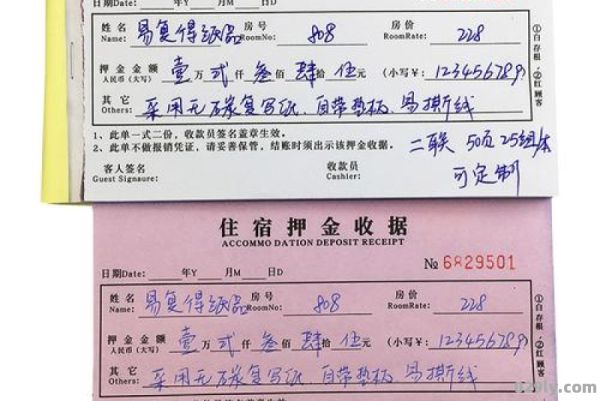 日期Date: 年Y 月M 日D
姓名 易复得纸品 房号 808 房价 228
Name: RoomNo: RoomRate:
押金金额 壹万贰仟叁佰肆拾伍元 (小写¥: 123456789)
人民币(大写)
其它 采用无碳复写纸、自带垫板、易撕线
Others:
1、此单一式二份，收款员签名盖章生效。
2、此单不做报销凭证，请妥善保管，结账时须出示该押金收据。
二联 50页 25组/本
可定制
客人签名 收款员
Guest Signaure: Cashier:
①白存根 ②红顾客
住宿押金收据
ACCOMMO DATION DEPOSIT RECEIPT
№ 6829501
日期Date: 年Y 月M 日D
姓名 易复得纸品 房号 808 房价 228
Name: RoomNo: RoomRate:
押金金额 壹万贰仟叁佰肆拾伍元 (小写¥: 123456789)
人民币(大写)
其它 采用无碳复写纸、自带垫板、易撕线
Others:
①白存根 ②红顾客